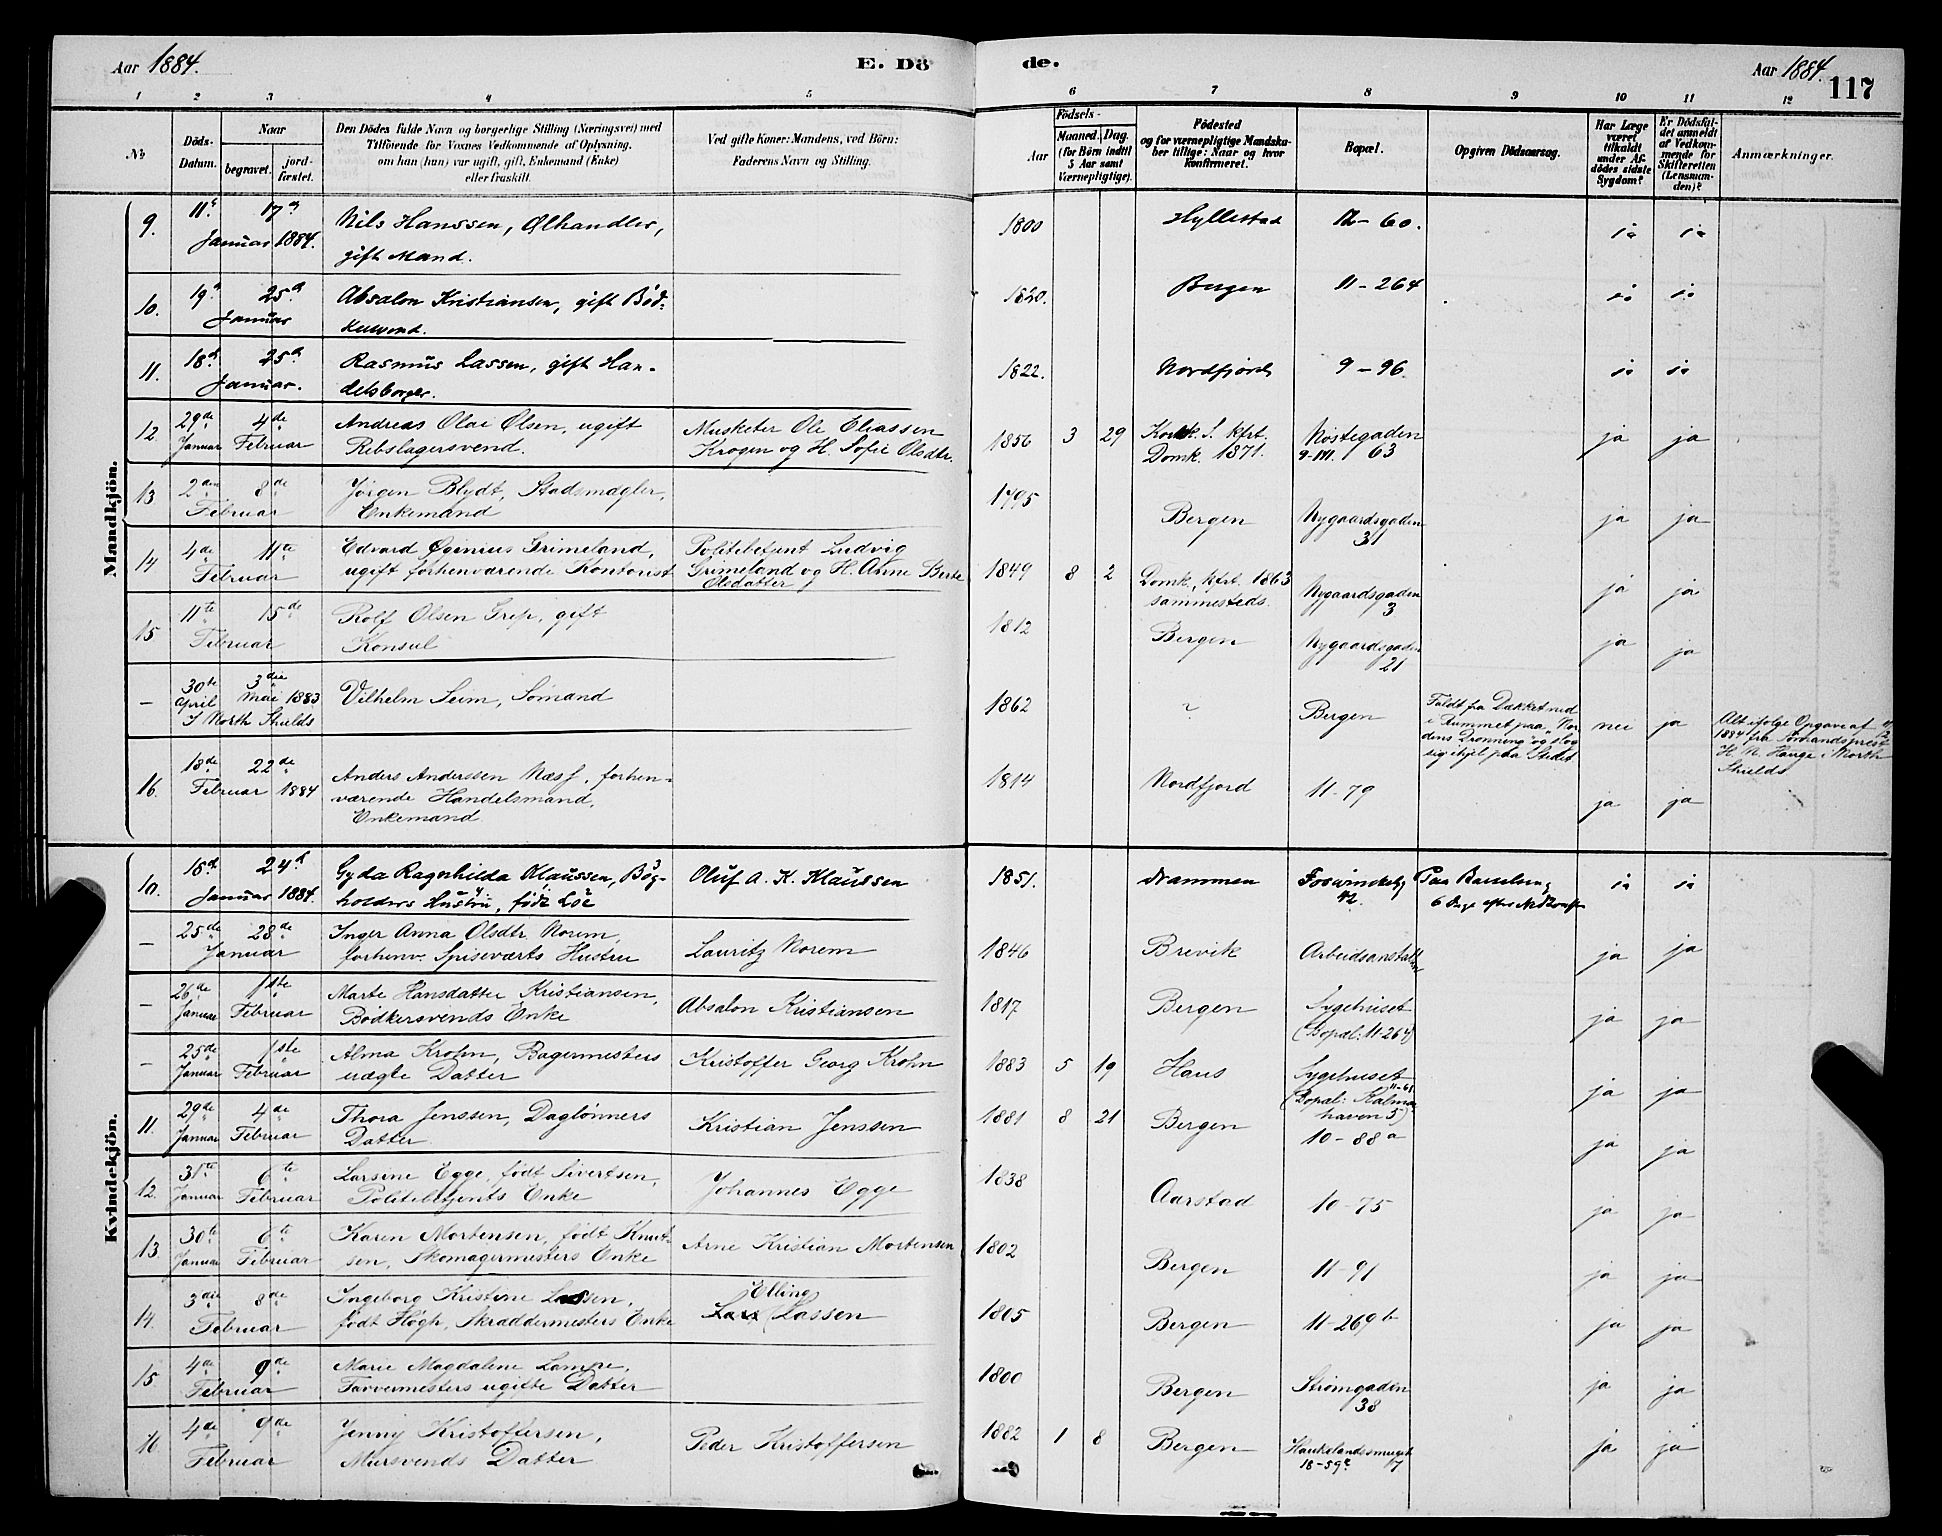 Aar 1884.
E. Dö
de.
Aar 1884.
117
1 2 3 4 5 6 7 8 9 10 11 12
No
Döds-
Datum.
Naar
begravet.
jord-
fæstet.
Den Dödes fulde Navn og borgerlige Stilling (Næringsvei) med
Tilföiende for Voxnes Vedkommende af Oplysning,
om han (hun) var ugift, gift, Enkemand (Enke)
eller fraskilt.
Ved gifte Koner: Mandens, ved Börn:
Faderens Navn og Stilling.
Födsels-
Aar
Maaned. Dag.
(for Börn indtil
5 Aar samt
Værnepligtige).
Födested
og for værnepligtige Mandska-
ber tillige: Naar og hvor
konfirmeret.
Bopæl.
Opgiven Dödsaarsag.
Har Læge
været
tilkaldt
under Af-
dödes sidste
Sygdom?
Er Dödsfal-
det anmeldt
af Vedkom-
mende for
Skifteretten
(Lensman-
den)?
Anmærkninger.
Mandkjön.
9. 11te 17de Januar 1884. Nils Hanssen, Ølhandler, 1800 Hyllestad 12-60. ja ja
gift Mand.
10. 19de 25de Januar Absalon Kristiansen, gift Bød- 1820. Bergen 11-264 ja ja
kersvend.
11. 18de 25de Januar. Rasmus Lassen, gift Han- 1822. Nordfjord 9-96. ja ja
delsborger.
12. 29de Januar 4de Februar Andreas Olai Olsen, ugift Musketer Ole Eliassen 1856 3 29 Korsk. S. kfrt. Nøstegaden ja ja
Rebslagersvend. Krogen og H. Sofie Olsdtr. Domk. 1871. 9-141. 63
13 2den 8de Februar Jörgen Blydt, Stadsmægler, 1795 Bergen Nygaardsgaden ja ja
Enkemand 31
14 4de 11te Februar Edvard Øginius Grimeland, Politibetjent Ludvig 1849 8 2 Domk., kfrt. 1863 Nygaardsgaden ja ja
ugift forhenværende Kontorist Grimeland og H. Anne Berte sammesteds. 3
Olsdatter
15 11te 15de Februar Rolf Olsen Grip, gift 1812 Bergen Nygaardsgaden ja ja
Konsul 21
- 30te April 3die Mai 1883 Vilhelm Seim, Sömand 1862 ? Bergen Faldt fra Dækket ned nei ja Alt ifölge Opgave af
I North Shields i Rummet paa "Nor- 1884 fra Sömandsprest
dens Dronning" og slog H. N. Hauge i North
sig ihjel paa Stedet Shields
16. 18de 22de Februar 1884 Anders Anderssen Næss, forhen- 1814 Nordfjord 11-79 ja ja
værende Handelsmand,
Enkemand
Kvindekjön.
10. 24de Januar 1884. Gyda Ragnhilda Klaussen, Bog- Oluf A. K. Klaussen 1851. Drammen Paa Barselseng ja ja
holders Hustru, født 6 Dage efter
- 25de 28de Januar Inger Anna Olsdtr. Norem, Lauritz Norem 1846 Brevik Arbeidsanstalten ja ja
forhenv. Spiseværts Hustru
- 26de Januar 1ste Februar Marte Hansdatter Kristiansen, Absalon Kristiansen 1817 Bergen Sygehuset ja ja
Bödkersvends Enke (Bopæl: 11-264)
- 25de Januar 1ste Februar Alma Krohn, Bagermesters Kristoffer Georg Krohn 1883 5 19 Haus Sygehuset ja ja
uægte Datter (Bopæl: Kalma
haven 5)
11. 29de Januar 4de Februar Thora Jenssen, Daglönners Kristian Jenssen 1881 8 21 Bergen 10-88a ja ja
Datter.
12. 31te Januar 6te Februar Larsine Egge, födt Sivertsen, Johannes Egge 1838 Aarstad 10-75 ja ja
Politibetjents Enke
13. 30te Januar 6te Februar Karen Mortensen, födt Knut- Arne Kristian Mortensen 1802 Bergen 11-91 ja ja
sen, Skomagermesters Enke
14. 3die 8de Februar Ingeborg Kristine Lassen, Elling 1805 Bergen 11-269b ja ja
födt Högh, Skræddermesters Enke Lars Lassen
15. 4de 9de Februar Marie Magdalene Lampe, 1800 Bergen Strömgaden ja ja
Farvermesters ugifte Datter 38
16 4de 9de Februar Jenny Kristoffersen, Peder Kristoffersen 1882 1 8 Bergen Haukelandssmuget ja ja
Mursvends Datter 18-59c 7